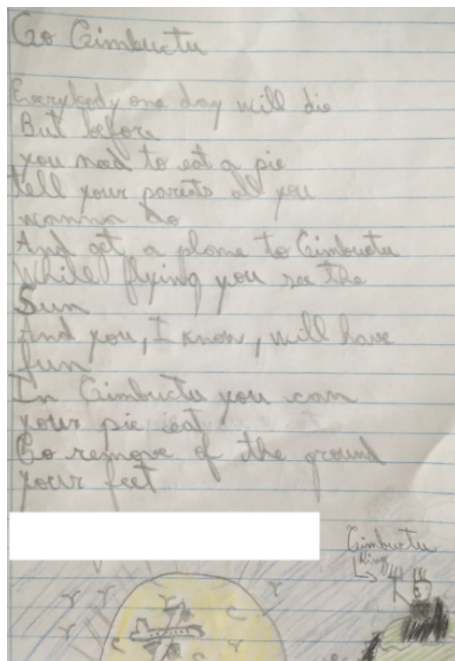 Go Gimbuctu
Everybody one day will die
But before
you need to eat a pie
tell your parents all you
wanna do
And get a plane to Gimbuctu
While flying you see the
Sun
And you, I know, will have
fun
In Gimbuctu you can
your pie eat
Go remove of the ground
your feet
Gimbuctu
King